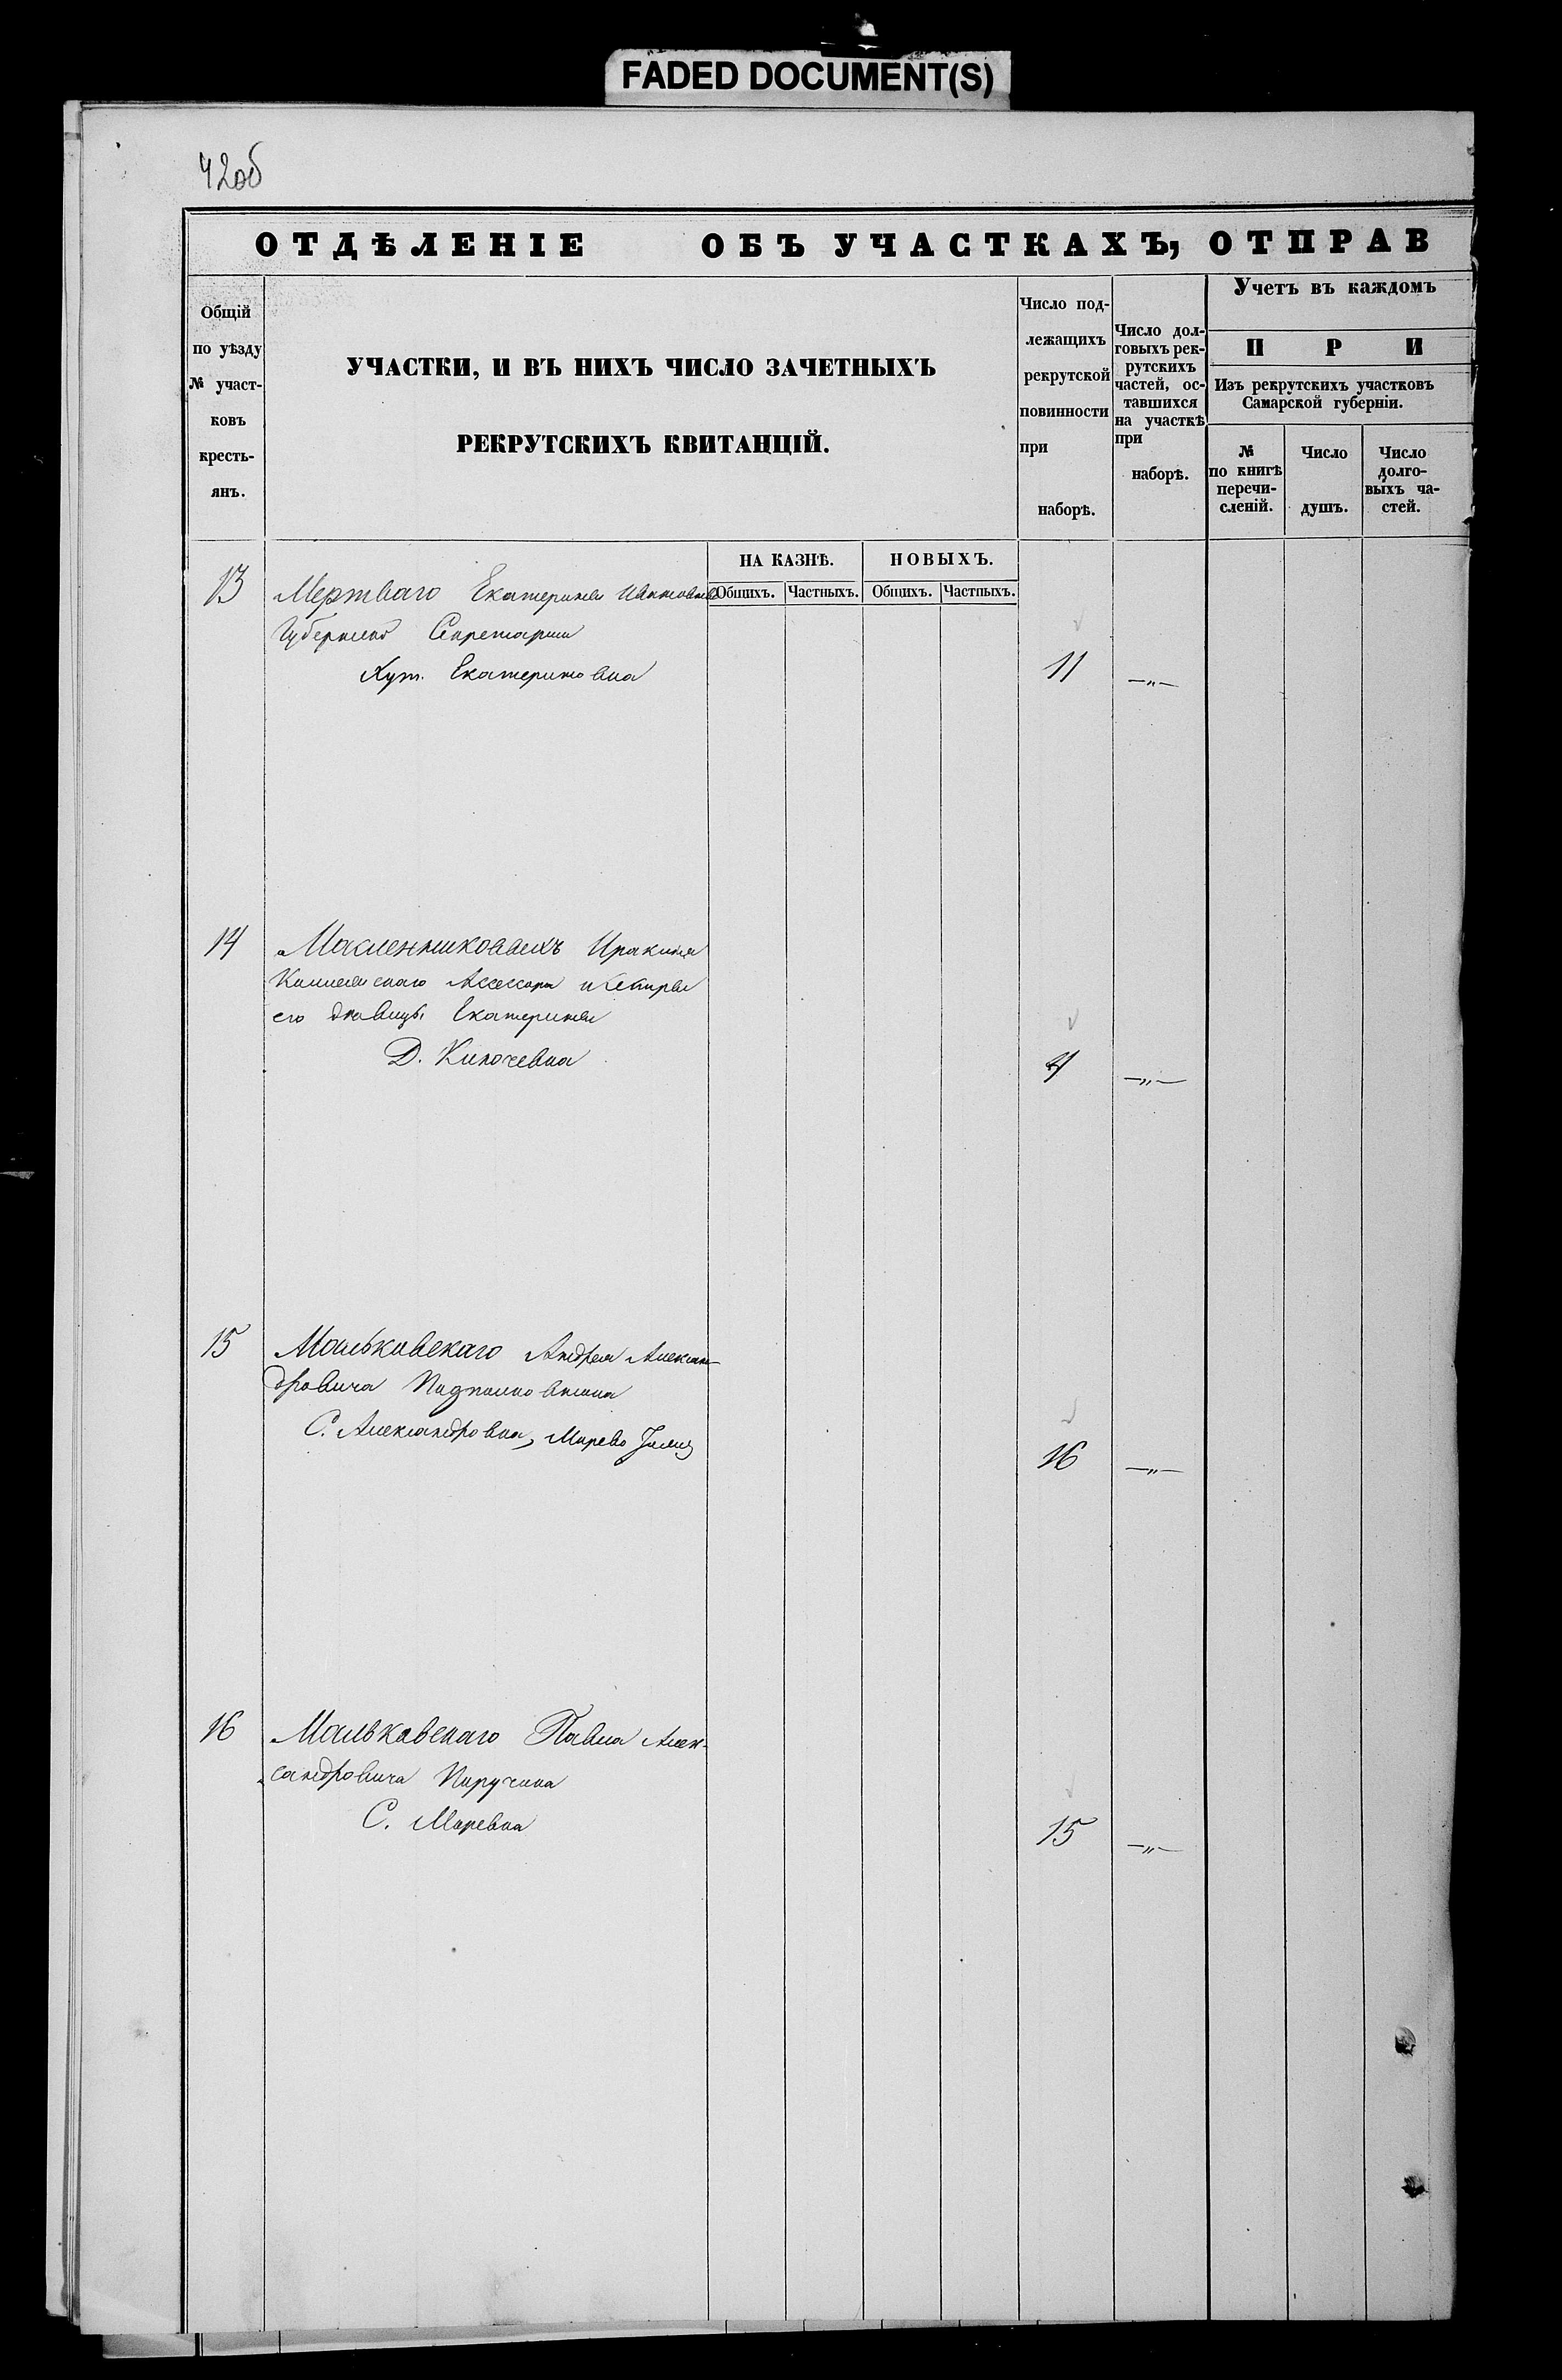 FADED DOCUMENT(S)
42об
ОТДѢЛЕНІЕ ОБЪ УЧАСТКАХЪ, ОТПРАВ
Общій
по уѣзду
№ участ-
ковъ
кресть-
янъ.
УЧАСТКИ, И ВЪ НИХЪ ЧИСЛО ЗАЧЕТНЫХЪ
РЕКРУТСКИХЪ КВИТАНЦІЙ.
Число под-
лежащихъ
рекрутской
повинности
при
наборѣ.
Число дол-
говыхъ рек-
рутскихъ
частей, ос-
тавшихся
на участкѣ
при
наборѣ.
Учетъ въ каждомъ
П Р И
Изъ рекрутскихъ участковъ
Самарской губерніи.
№
по книгѣ
перечи-
сленій.
Число
душъ.
Число
долго-
выхъ ча-
стей.
НА КАЗНѢ. НОВЫХЪ.
Общихъ. Частныхъ. Общихъ. Частныхъ.
13 Мертваго Екатерины Ивановны
Губернск Секретарши
Хут. Екатериновка 11 —„—
14 Масленниковыхъ Ираклия
Коллежскаго Асессора и сестры
его дѣвицы Екатерины
Д. Ключевка 4 —„—
15 Мальковскаго Андрея Алексан-
дровича Подполковника
С. Александровка, Марьево 16 —„—
16 Мальковскаго Павла Алек-
сандровича Поручика
С. Марьевка 15 —„—